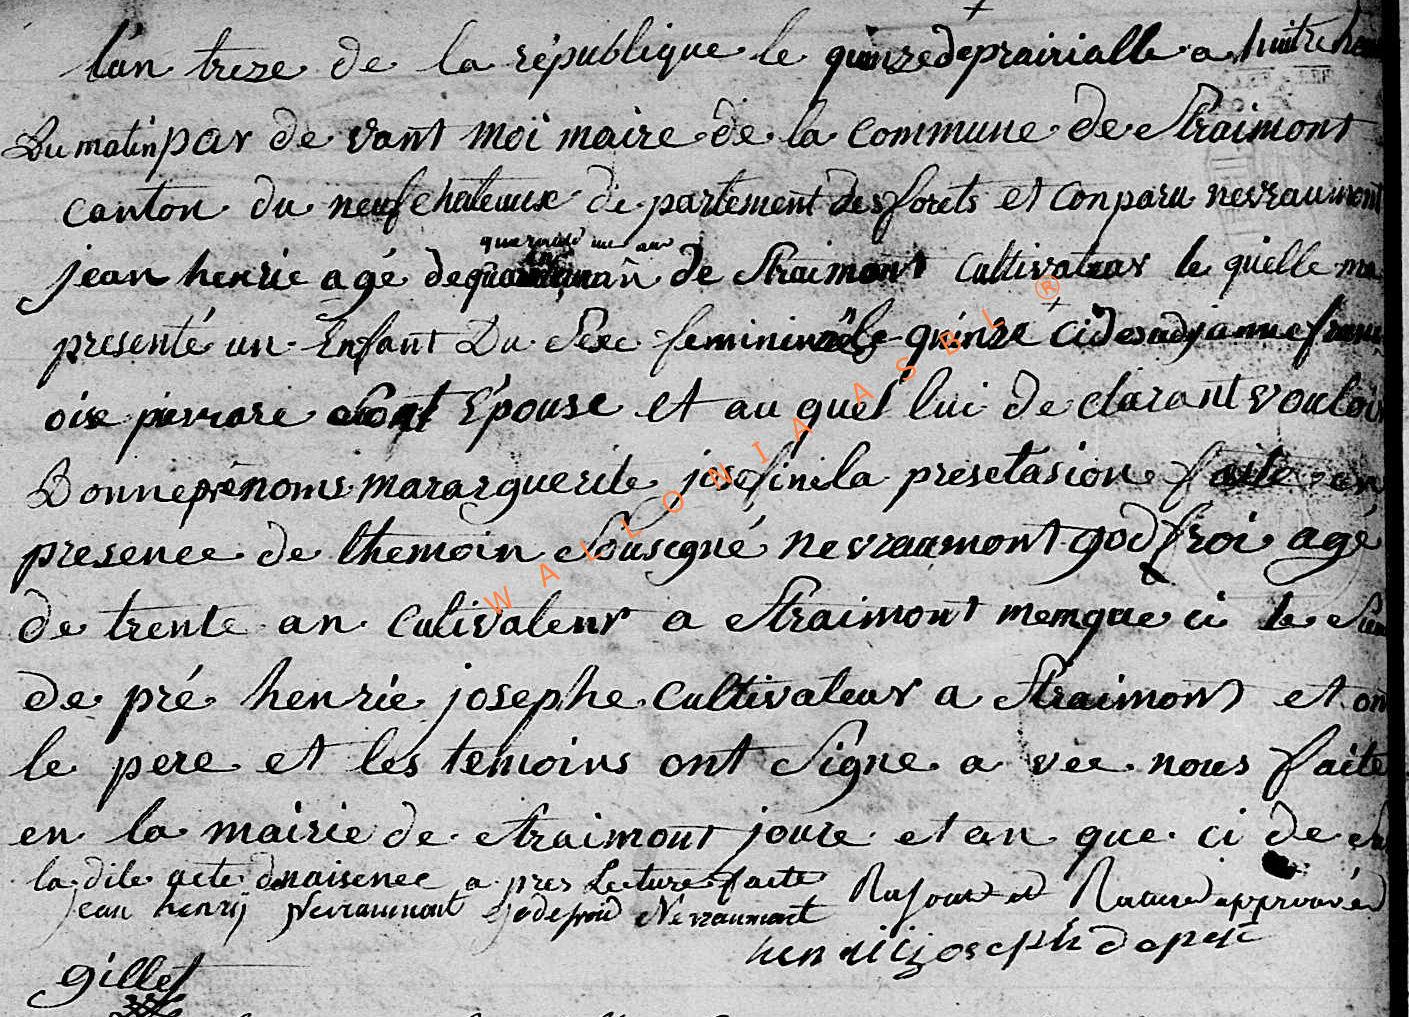 l'an treze de la république le quinze de prairialle a huitre heu
Du matin par de vant moi maire de la commune de Straimont
canton du neufchateaux de partement des forets et conparu nevraumont
quarante un an
jean henrie agé de an de Straimont cultivateur le quelle ma
presenté un Enfant Du Sexe feminin le quinze
oise Epouse et au quel lui de clarant vouloir
Donne prénoms mararguerite josefine la presetasion faite en
presence de themoin Sousegné nevraumont godfroi agé
de trente an cultivateur a Straimont memque ci le Sieu
de pré henrie josephe cultivateur a Straimont et on
le pere et les temoins ont Signe a vec nous faite
en la mairie de Straimont joure et an que ci de
la dite acte de naisence a pres Lecture faite Rajoute et Rature approuvée
jean henrij Nevraumont godefroid Nevraumont
henrii joseph depré
gillet
WALLONIA ASBL ®